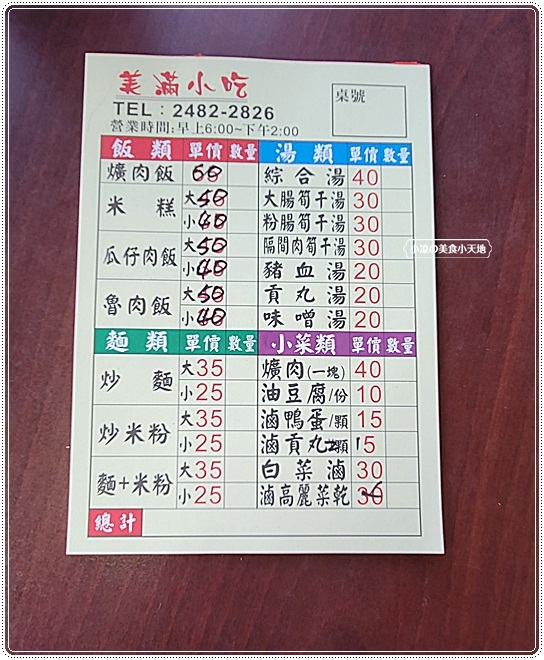 美滿小吃
桌號
TEL：2482-2826
營業時間:早上6:00~下午2:00
飯類 單價 數量 湯類 單價 數量
爌肉飯 60 綜合湯 40
米糕 大50 大腸筍干湯 30
小40 粉腸筍干湯 30
瓜仔肉飯 大50 隔間肉筍干湯 30
小40 豬血湯 20
魯肉飯 大50 貢丸湯 20
小40 味噌湯 20
麵類 單價 數量 小菜類 單價 數量
炒麵 大35 爌肉(一塊) 40
小25 油豆腐/份 10
炒米粉 大35 滷鴨蛋/顆 15
小25 滷貢丸2顆 15
麵+米粉 大35 白菜滷 30
小25 滷高麗菜乾
總計
小凉の美食小天地